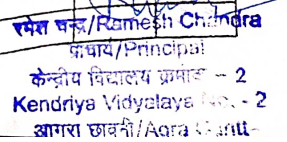 रमेश चन्द्र/Ramesh Chandra
प्राचार्य/Principal
केन्द्रीय विद्यालय क्रमांक - 2
Kendriya Vidyalaya No. - 2
आगरा छावनी/Agra Cantt-